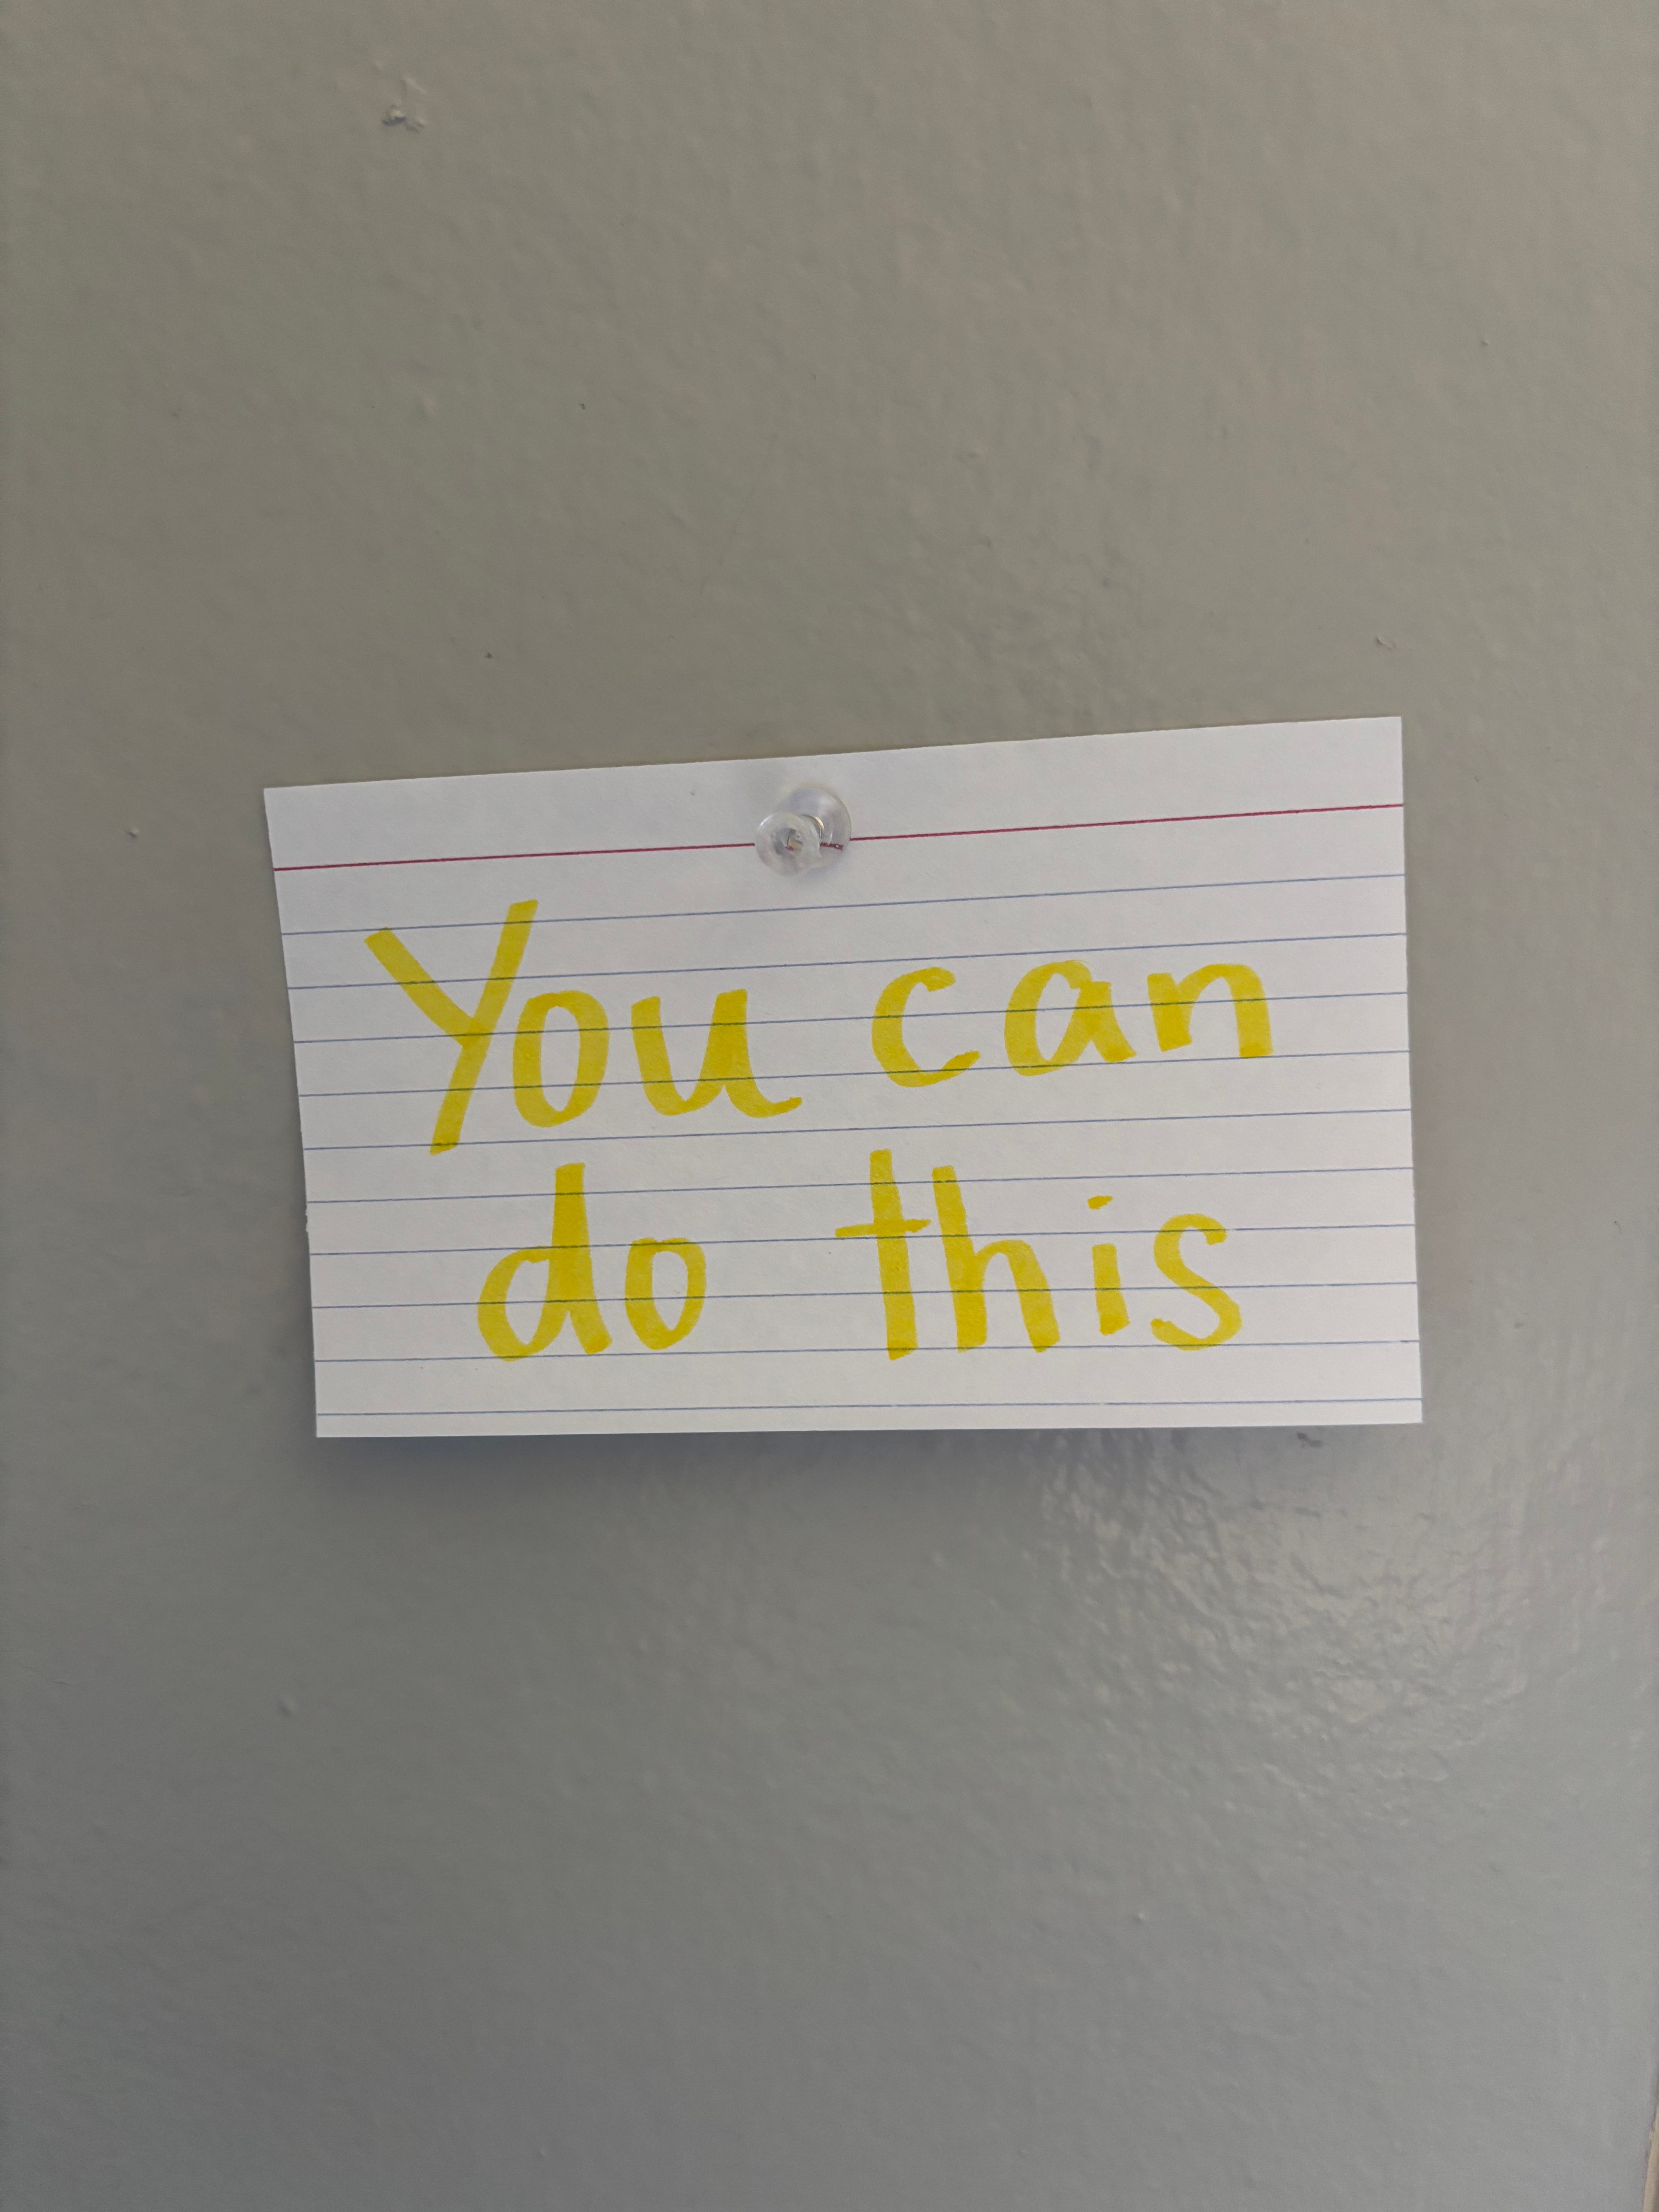 You can
do this